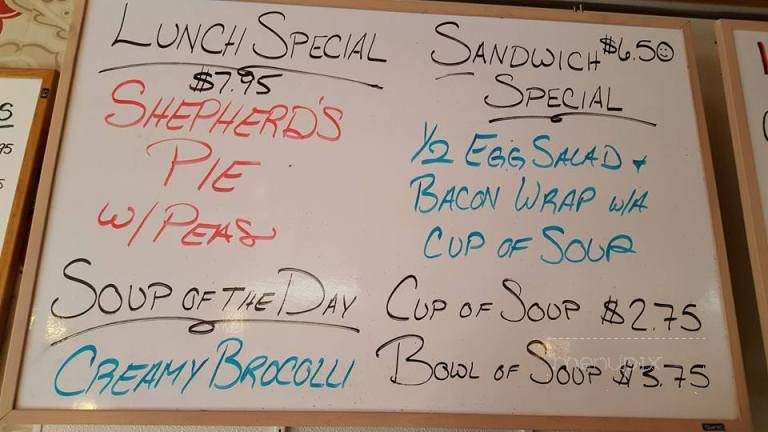 LUNCH SPECIAL
$7.95
SHEPHERD'S
PIE
W/ PEAS
SANDWICH $6.50
SPECIAL
1/2 EGG SALAD +
BACON WRAP W/A
CUP OF SOUP
SOUP OF THE DAY
CREAMY BROCOLLI
CUP OF SOUP $2.75
BOWL OF SOUP $3.75
menupix
S
95
5